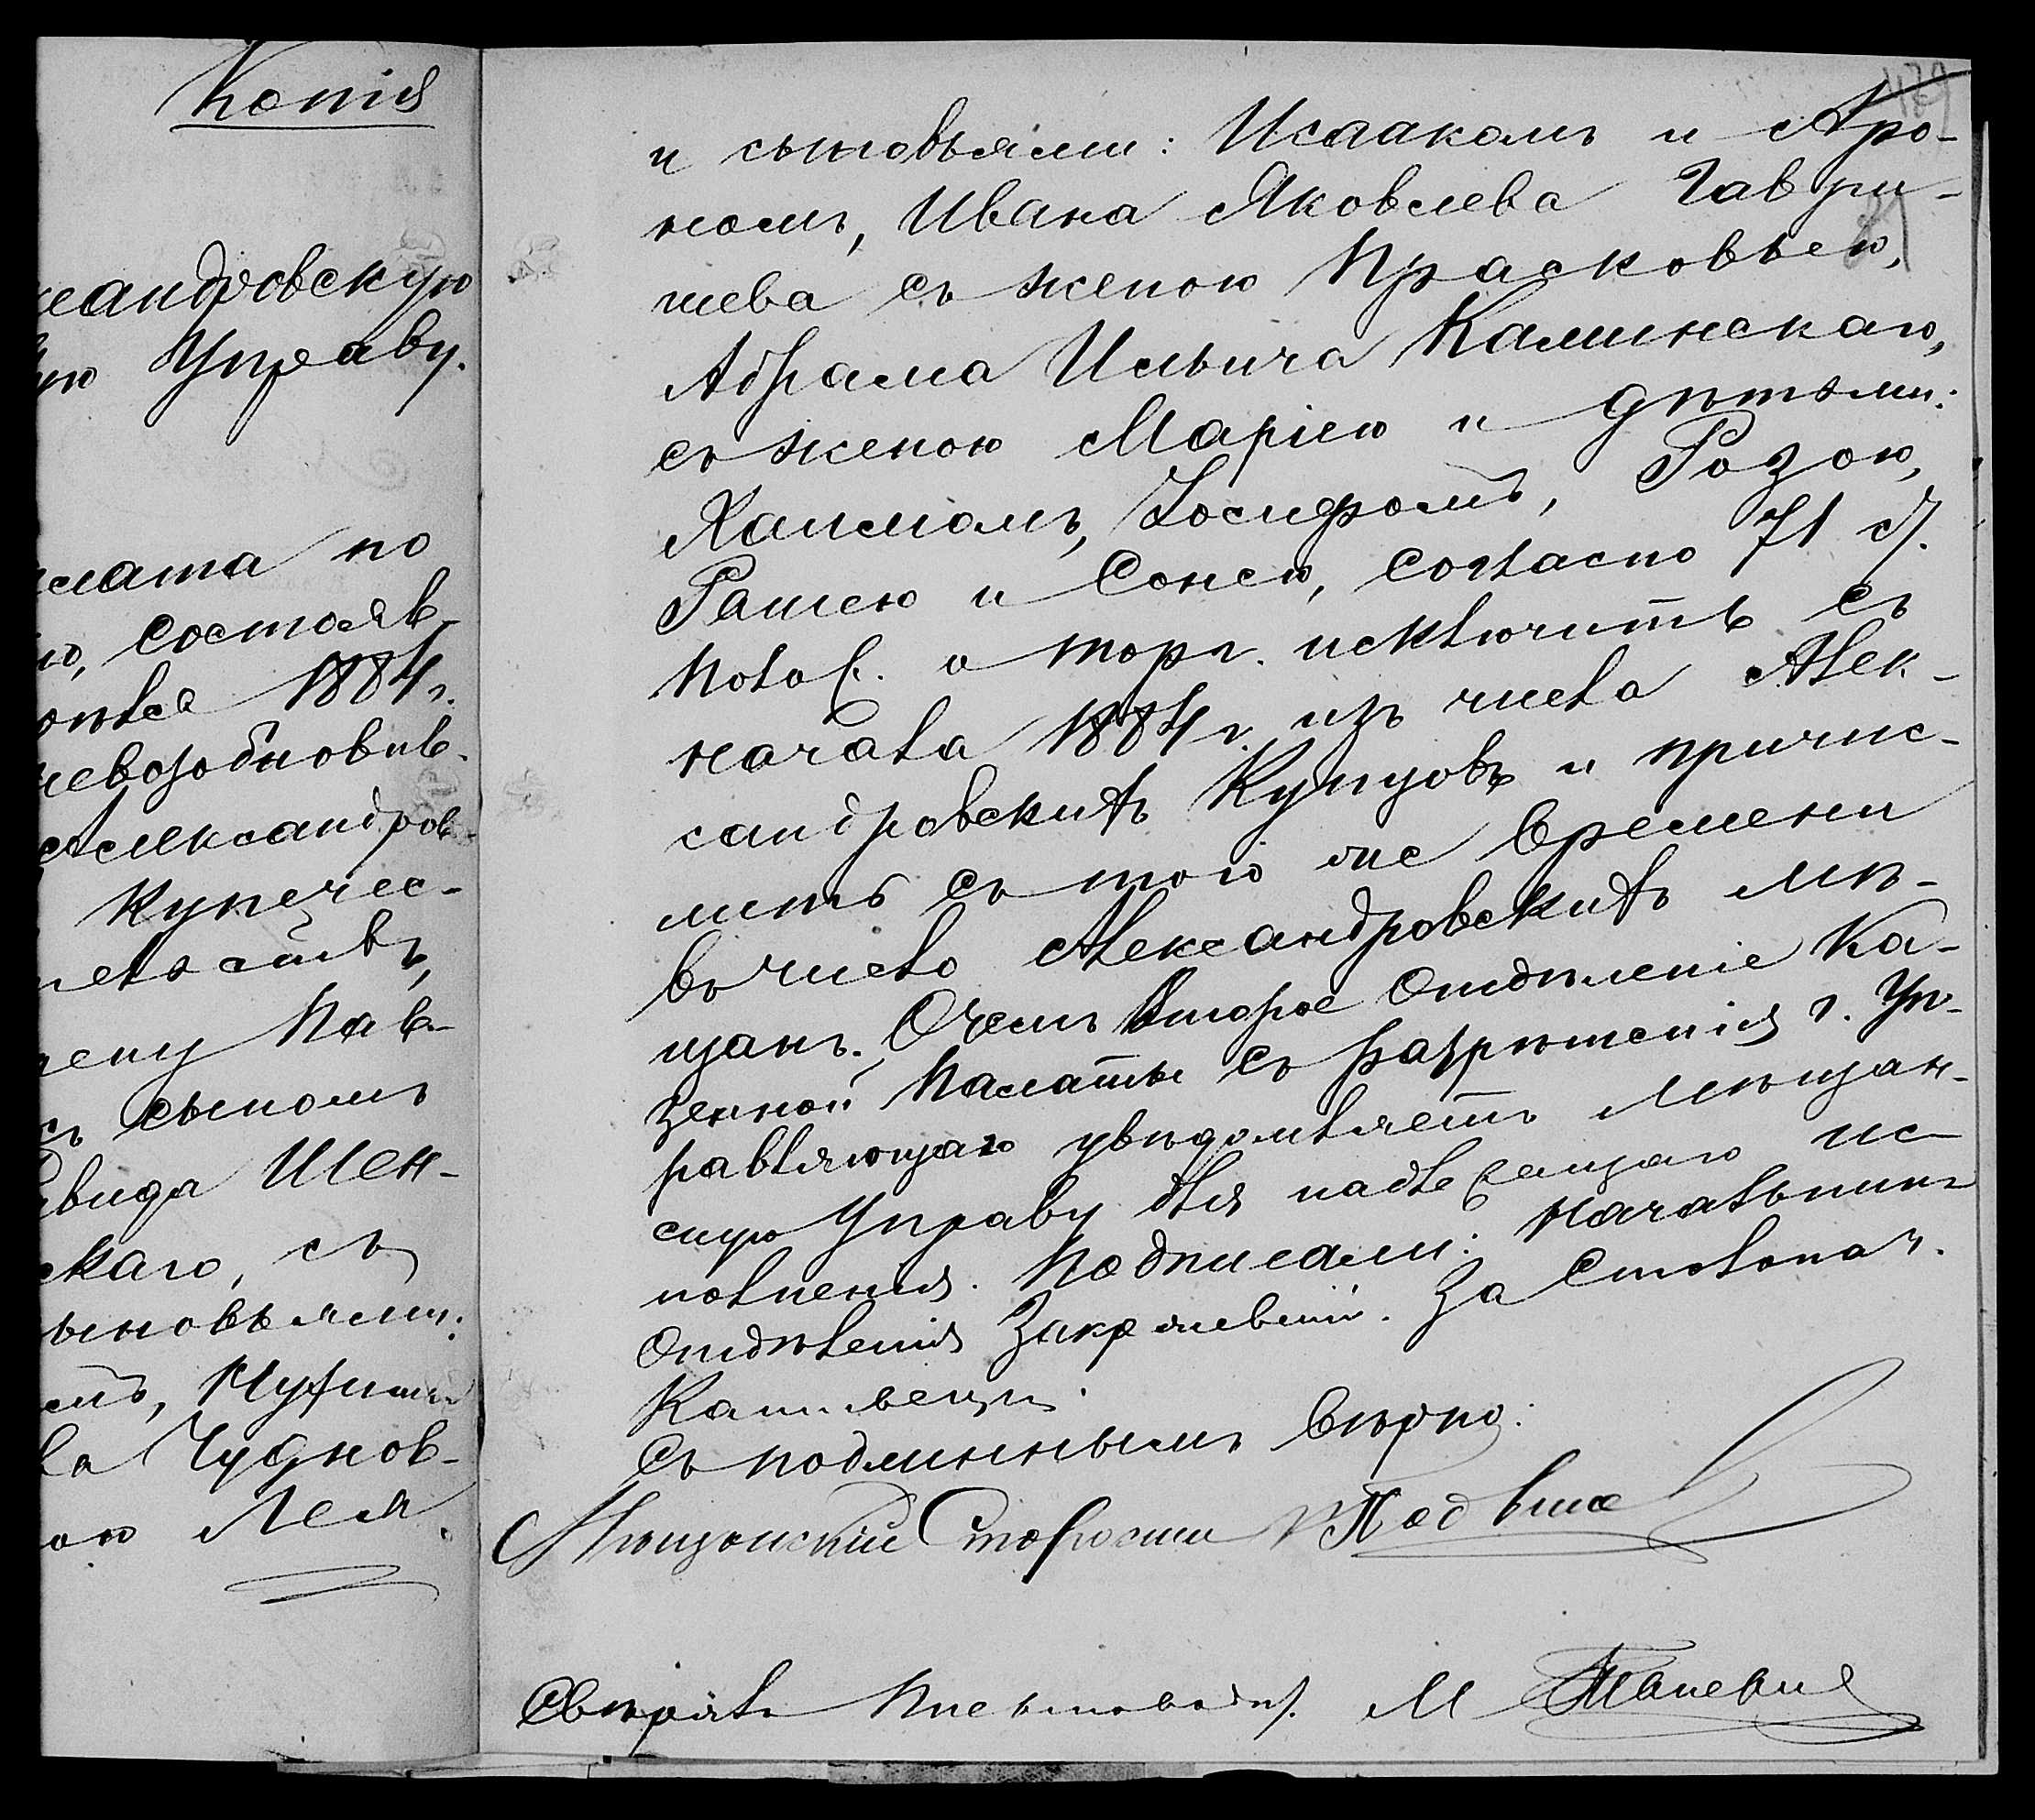 Копія
ксандровскую
ую Управу.
лата по
ю, состояв
1884 г.
невозобновив-
Александров-
Купечес-
Пав-
съ сыномъ
авида Шен-
скаго, съ
ыновьями:
Чуднов-
ою Лея
479
81
и сыновьями: Исаакомъ и Аро-
номъ, Ивана Яковлева Гаври-
шева съ женою Прасковьею,
Абрама Ильича Калинскаго,
съ женою Маріею и дѣтьми:
Хаимомъ, Іосифомъ, Розою,
Рашею и Сонею, согласно 71 ст.
Полож. о торг. исключить съ
начала 1884 г. изъ числа Алек-
сандровскихъ Купцовъ и причис-
лить съ того же времени
въ число Александровскихъ мѣ-
щанъ. О чемъ Второе Отдѣленіе Ка-
зенной Палаты съ разрѣшенія г. Уп-
равляющаго увѣдомляетъ Мѣщан-
скую Управу для надлежащаго ис-
полненія. Подписали: Начальникъ
Отдѣленія Закржевскій. За Столонач.
Съ подлиннымъ вѣрно:
Мѣщанскій Староста
Свѣрялъ Письмоводит. М